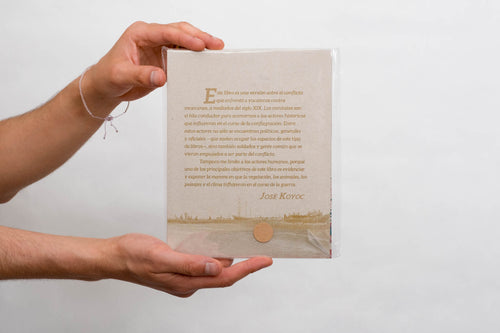 Este libro es una versión sobre el conflicto
que enfrentó a yucatecos contra
mexicanos, a mediados del siglo XIX. Los combates son
el hilo conductor para acercarnos a los actores históricos
que influyeron en el curso de la conflagración. Entre
estos actores no sólo se encuentran políticos, generales
y oficiales —que suelen ocupar los espacios de este tipo
de libros—, sino también soldados y gente común que se
vieron empujados a ser parte del conflicto.
Tampoco me limito a los actores humanos, porque
uno de los principales objetivos de este libro es evidenciar
y exponer la manera en que la vegetación, los animales, los
paisajes y el clima influyeron en el curso de la guerra.
José Koyoc